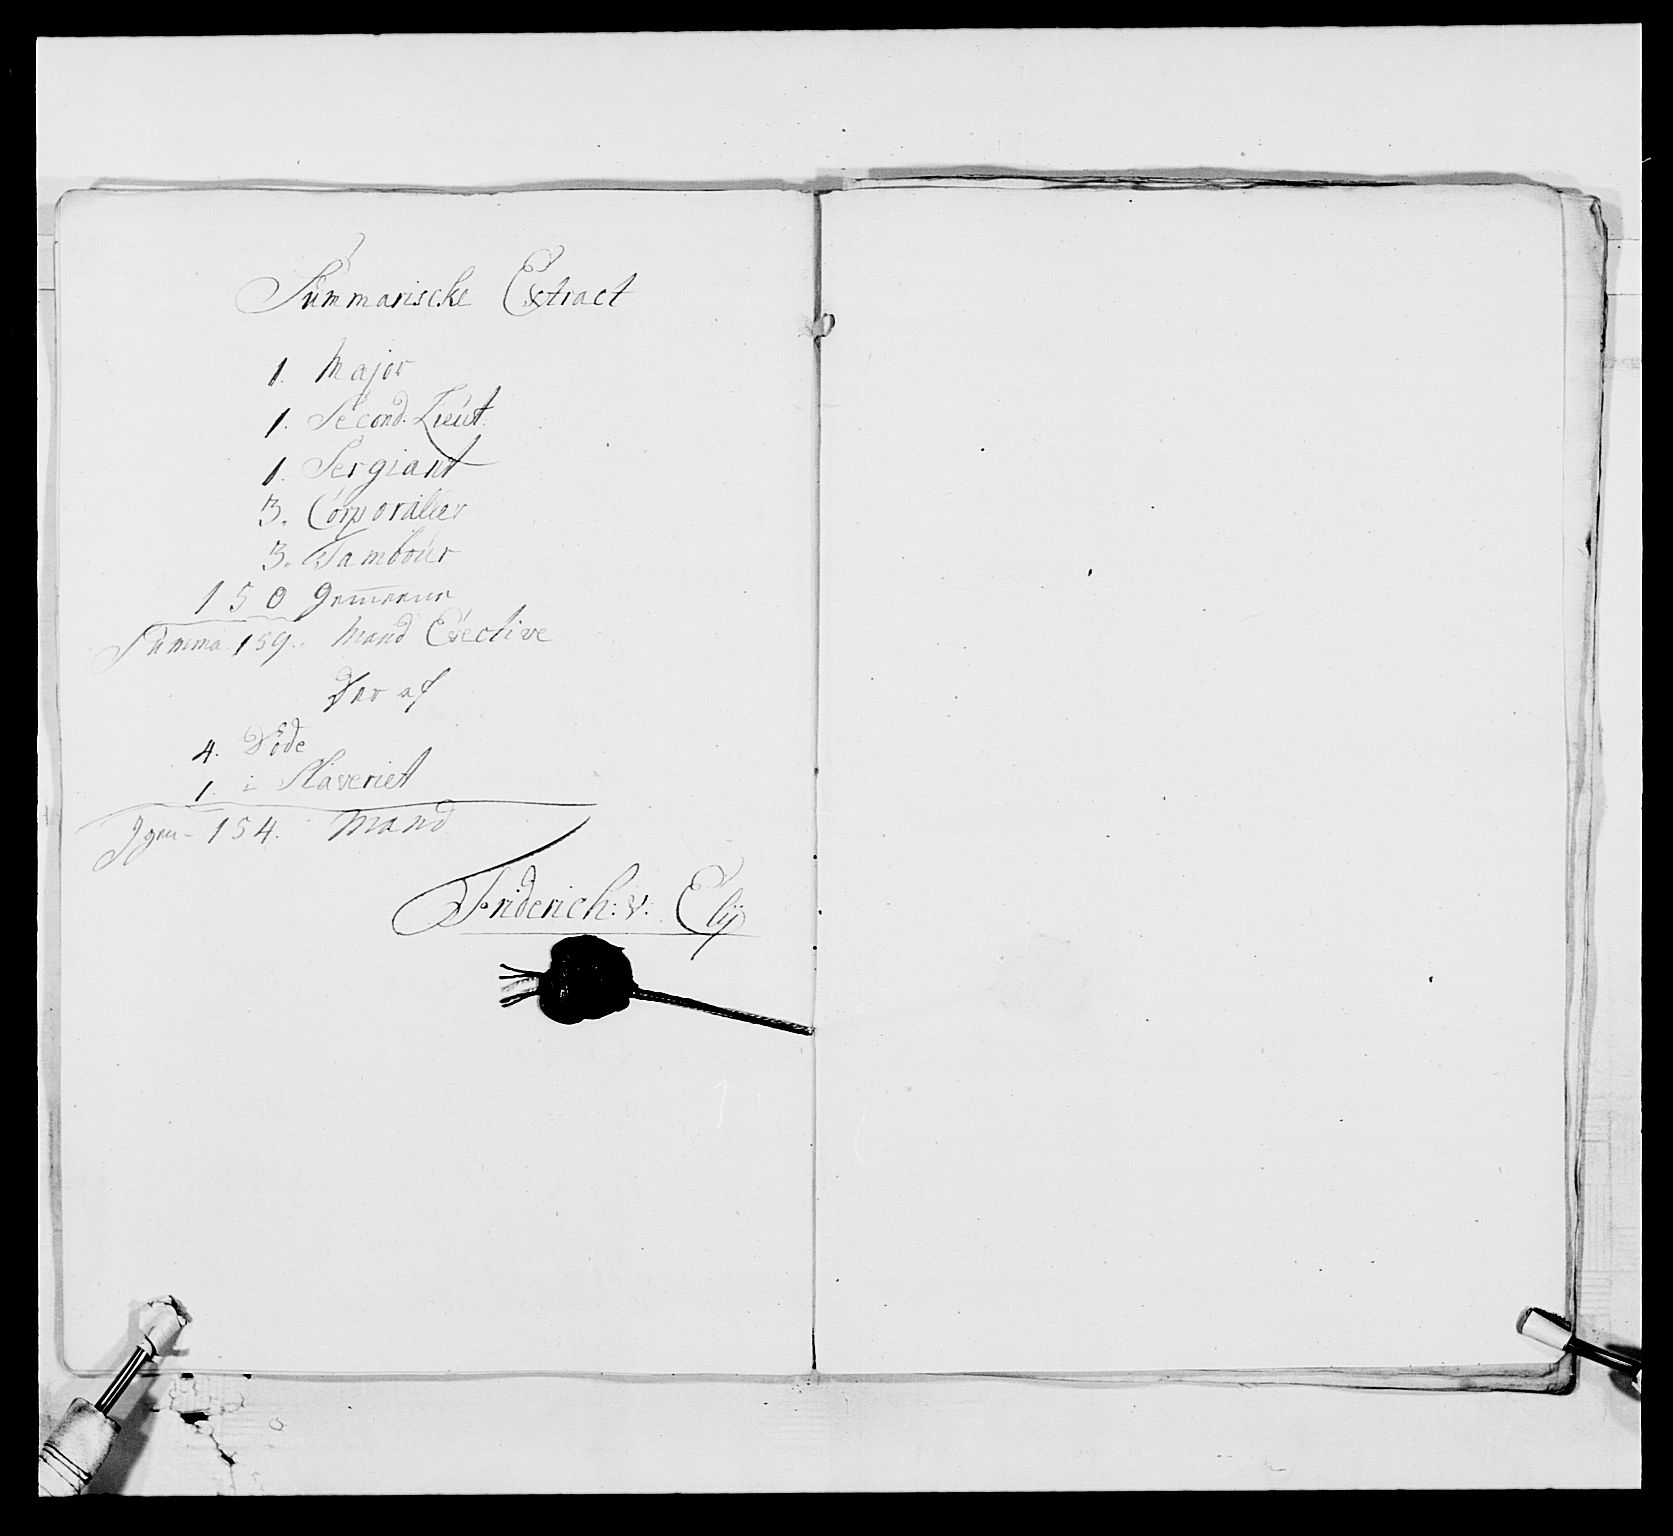 Summariscke Extract
1. Major
1. Second. Lieut.
1. Sergiant
3. Corporaller
3. Tambour
150 gemeene
Summa 159. Mand Efective
Der af
4. Døde
1. i Slaveriet
Igen 154. Mand
Friderich: v: Elÿ